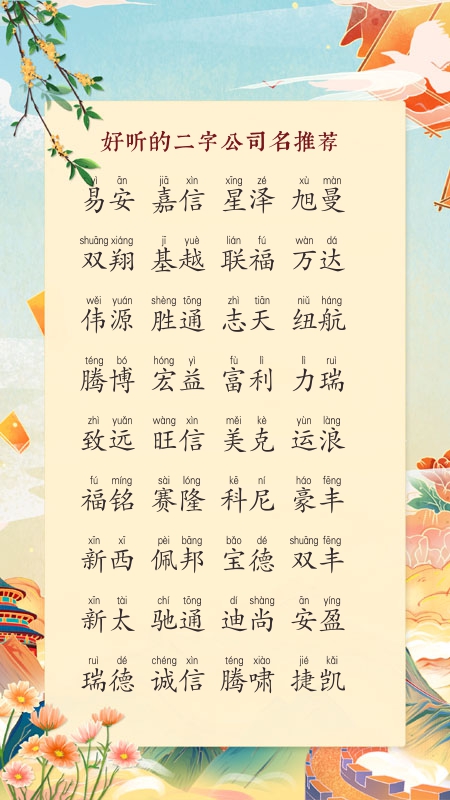 好听的二字公司名推荐
yì ān jiā xìn xīng zé xù màn
易安 嘉信 星泽 旭曼
shuāng xiáng jī yuè lián fú wàn dá
双翔 基越 联福 万达
wěi yuán shèng tōng zhì tiān niǔ háng
伟源 胜通 志天 纽航
téng bó hóng yì fù lì lì ruì
腾博 宏益 富利 力瑞
zhì yuǎn wàng xìn měi kè yùn làng
致远 旺信 美克 运浪
fú míng sài lóng kē ní háo fēng
福铭 赛隆 科尼 豪丰
xīn xī pèi bāng bǎo dé shuāng fēng
新西 佩邦 宝德 双丰
xīn tài chí tōng dí shàng ān yíng
新太 驰通 迪尚 安盈
ruì dé chéng xìn téng xiào jié kǎi
瑞德 诚信 腾啸 捷凯